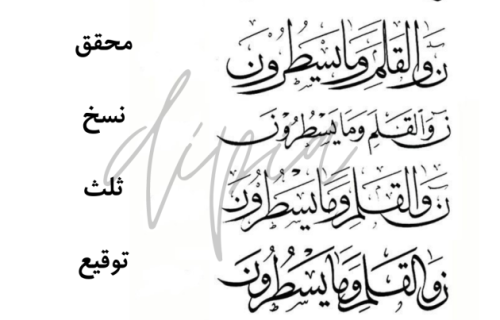 محقق ن والقلم وما يسطرون
نسخ ن والقلم وما يسطرون
ثلث ن والقلم وما يسطرون
توقيع ن والقلم وما يسطرون
dipia